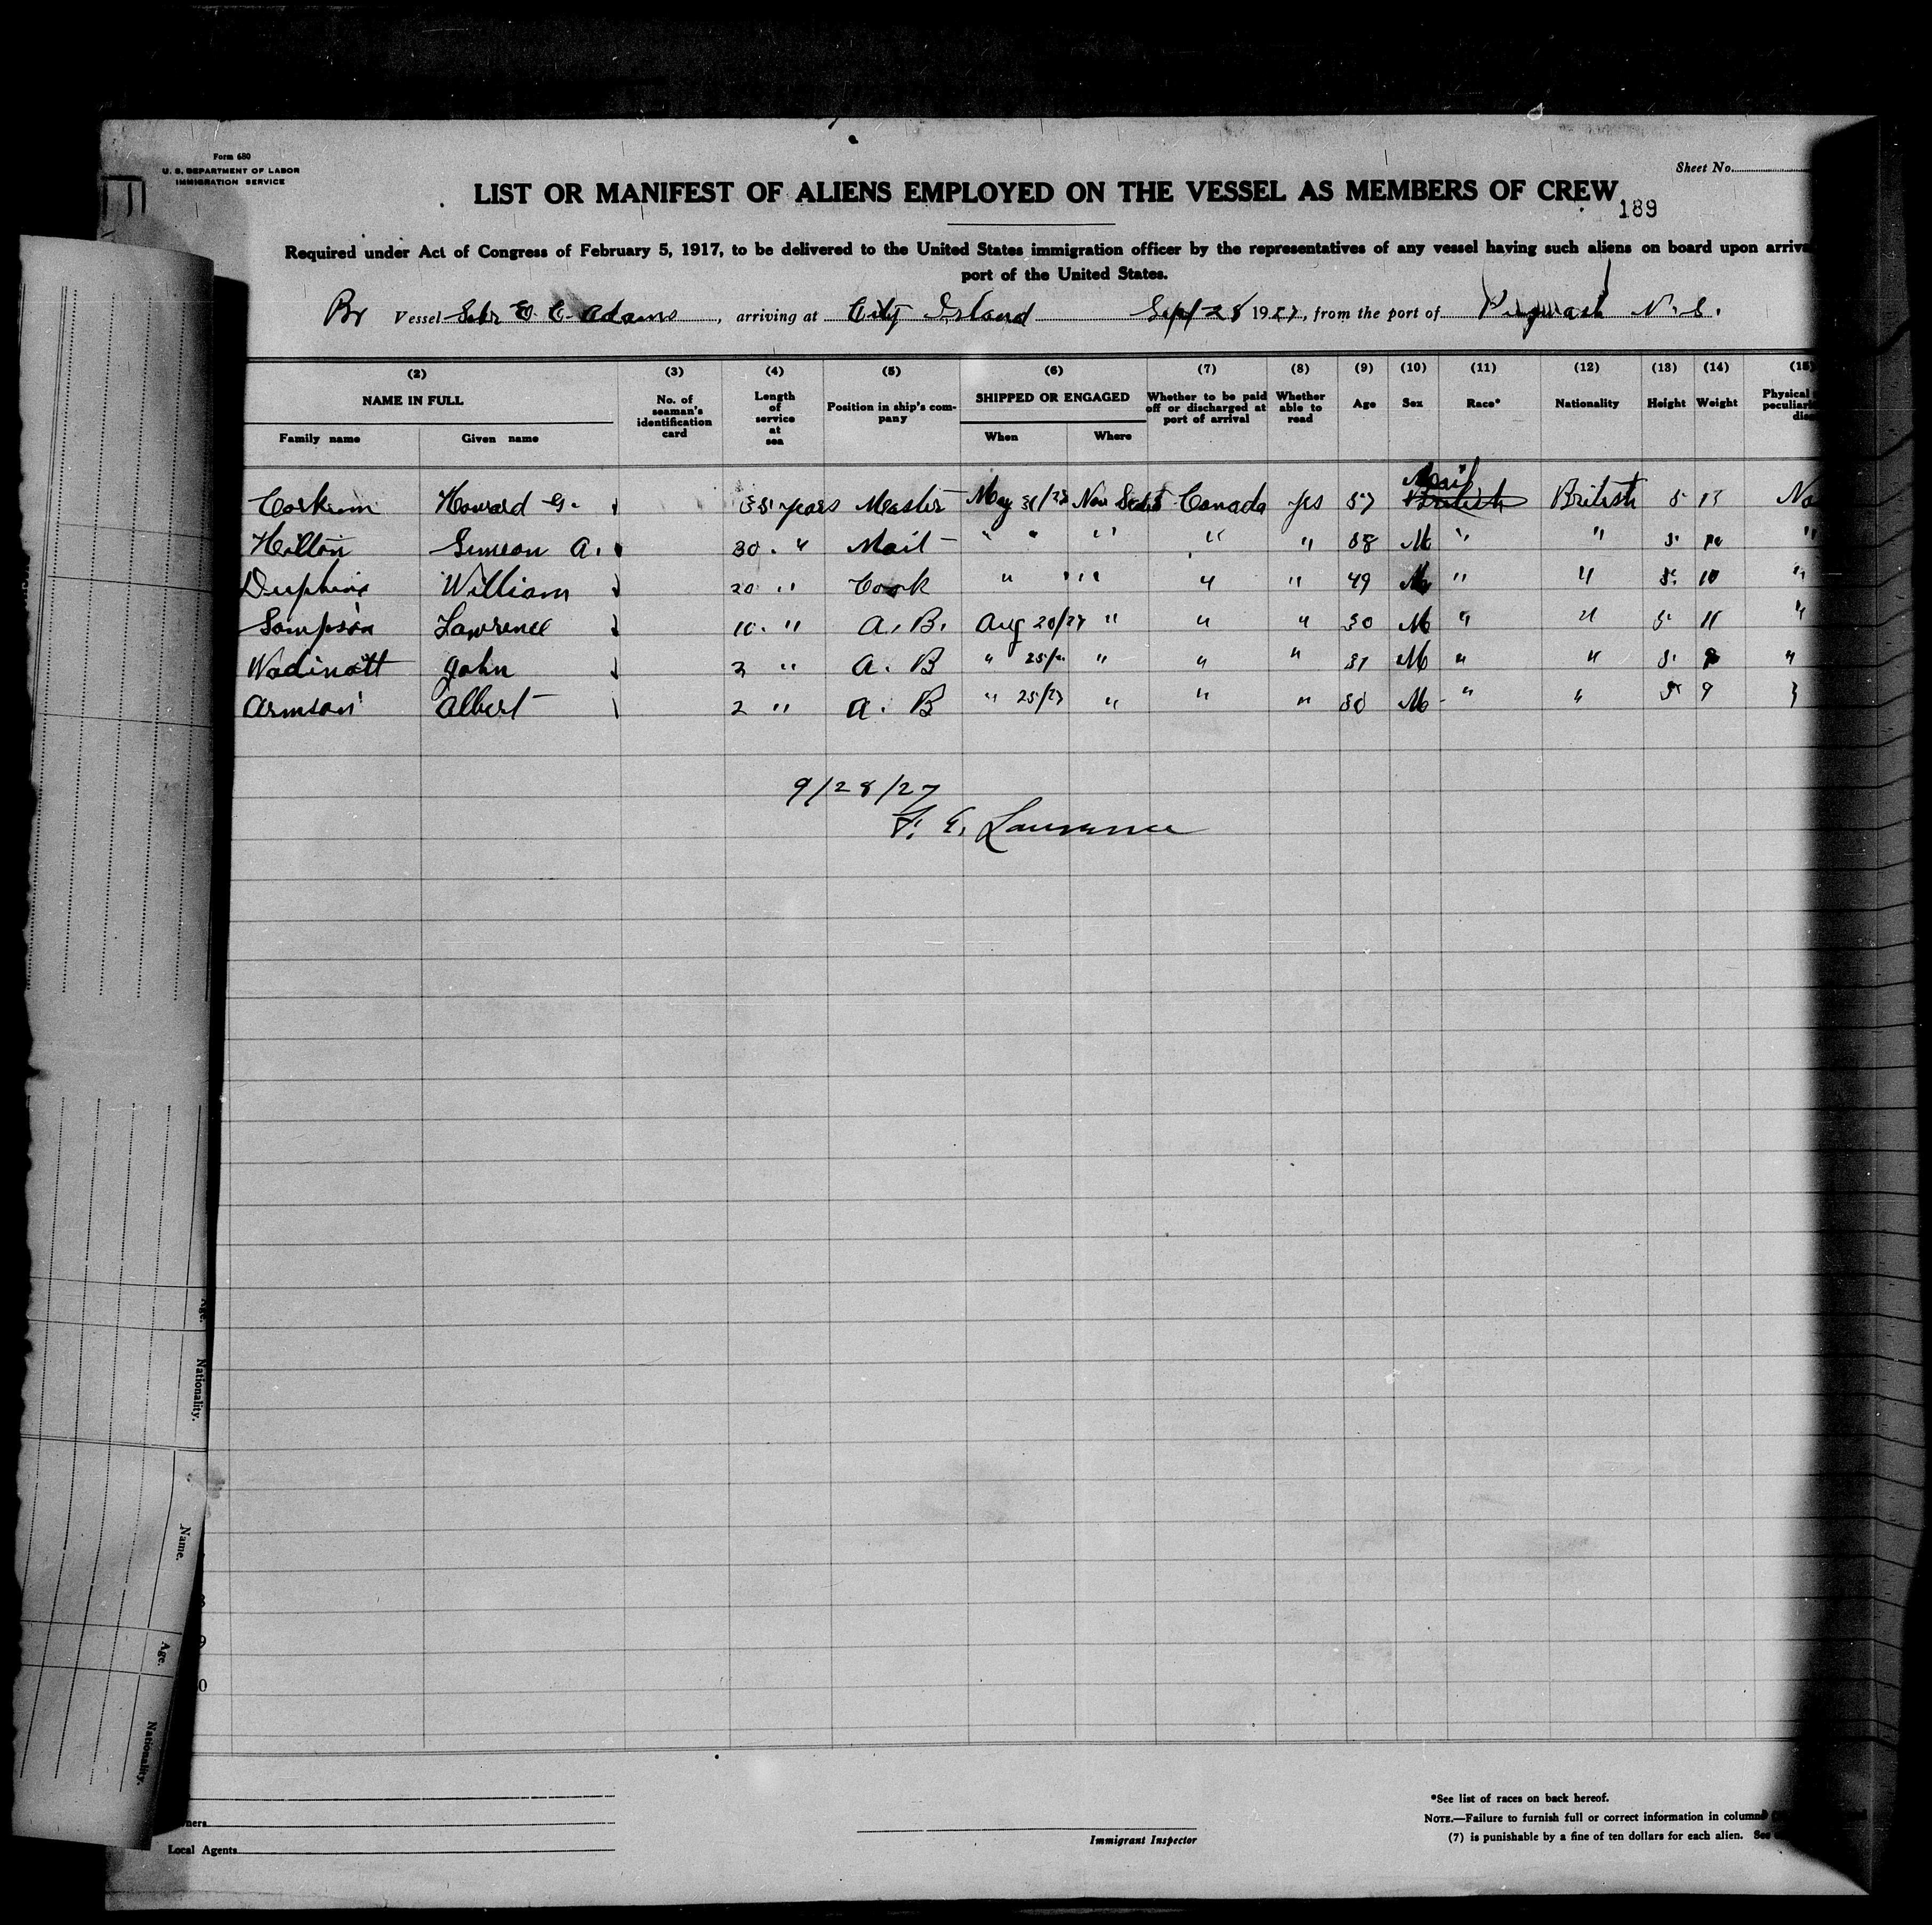 Form 680
U. S. DEPARTMENT OF LABOR
IMMIGRATION SERVICE
Sheet No.
LIST OR MANIFEST OF ALIENS EMPLOYED ON THE VESSEL AS MEMBERS OF CREW
189
Required under Act of Congress of February 5, 1917, to be delivered to the United States immigration officer by the representatives of any vessel having such aliens on board upon
port of the United States.
Br Vessel Schr E. C. Adams, arriving at City Island Sept 28 1927, from the port of Pugwash N.S.
(2) (3) (4) (5) (6) (7) (8) (9) (10) (11) (12) (13) (14) (15)
NAME IN FULL
Family name Given name
No. of seaman's identification card
Length of service at sea
Position in ship's company
SHIPPED OR ENGAGED
When Where
Whether to be paid off or discharged at port of arrival
Whether able to read
Age
Sex
Race*
Nationality
Height
Weight
Physical
Corkum Howard G. 35 years Master May 31/27 Nov Scotia Canada yes 57 British British 5 13 No
Hilton Simeon A. 30 " Mait " " " " " 58 M " " 5 "
William 20 " Cook " " " " 49 M " " 5 10 "
Sampson Lawrence 10 " A. B. Aug 20/27 " " " 30 M " " 5 11 "
John 2 " A. B " 25/ " " " M " " 5 "
Albert 2 " A. B " 25/27 " " " M " " 5 9
9/28/27
F. E. Lawrence
Age.
Nationality.
Name.
Age.
Nationality.
9
0
Local Agents
Immigrant Inspector
*See list of races on back hereof.
NOTE.—Failure to furnish full or correct information in columns
(7) is punishable by a fine of ten dollars for each alien. See